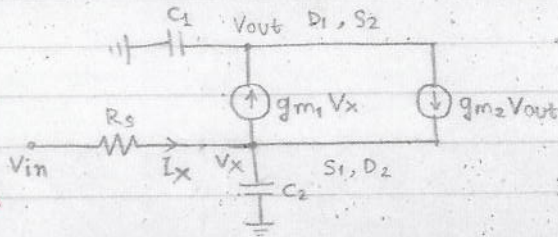 C1
Vout D1, S2
gm1 Vx
gm2 Vout
Rs
Vin
Ix
Vx
S1, D2
C2